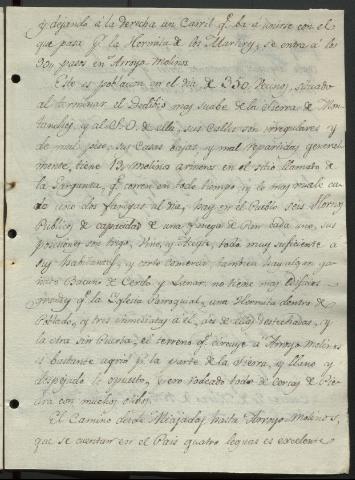 y dejando á la derecha un Carril q.e ba á unirse con el
que pasa p.r la Hermita de los Martires, se entra á los
pasos en Arroyo Molinos
Este es poblacion en el dia de 350 Vecinos, situado
al terminar el Declibio mas suabe de la Sierra de Mon-
tanchez, y al S.O. de ella, sus calles son irregulares y
de mal piso, sus Casas bajas y mal repartidas general-
mente, tiene 13 molinos arineros en el sitio llamado de
la Garganta, q.e corren en todo tiempo, y lo mas muele ca-
da uno dos fanegas al dia, hay en el Pueblo seis Hornos
Publicos de capacidad de una fanega de Pan cada uno, sus
posiciones son trigo, Vino, y Aceyte, todo muy suficiente a
sus habitantes, y corto comercio, tambien hay algun ga-
nado Bacuno de Cerda y Lanar. no tiene mas edificios
grandes q.e la Yglesia Parroquial, una Hermita dentro de
Poblado, y tres inmediatas á el, dos de ellas destechadas, y
la otra sin Puerta, el terreno q.e circuye a Arroyo Molinos
es bastante agrio p.r la parte de la Sierra, y llano y
despejado lo opuesto, pero rodeado todo de cercas de Pie-
dra con muchos olibos.
El Camino desde Miajadas hasta Arroyo Molinos,
que se cuentan en el Pais quatro leguas es excelente